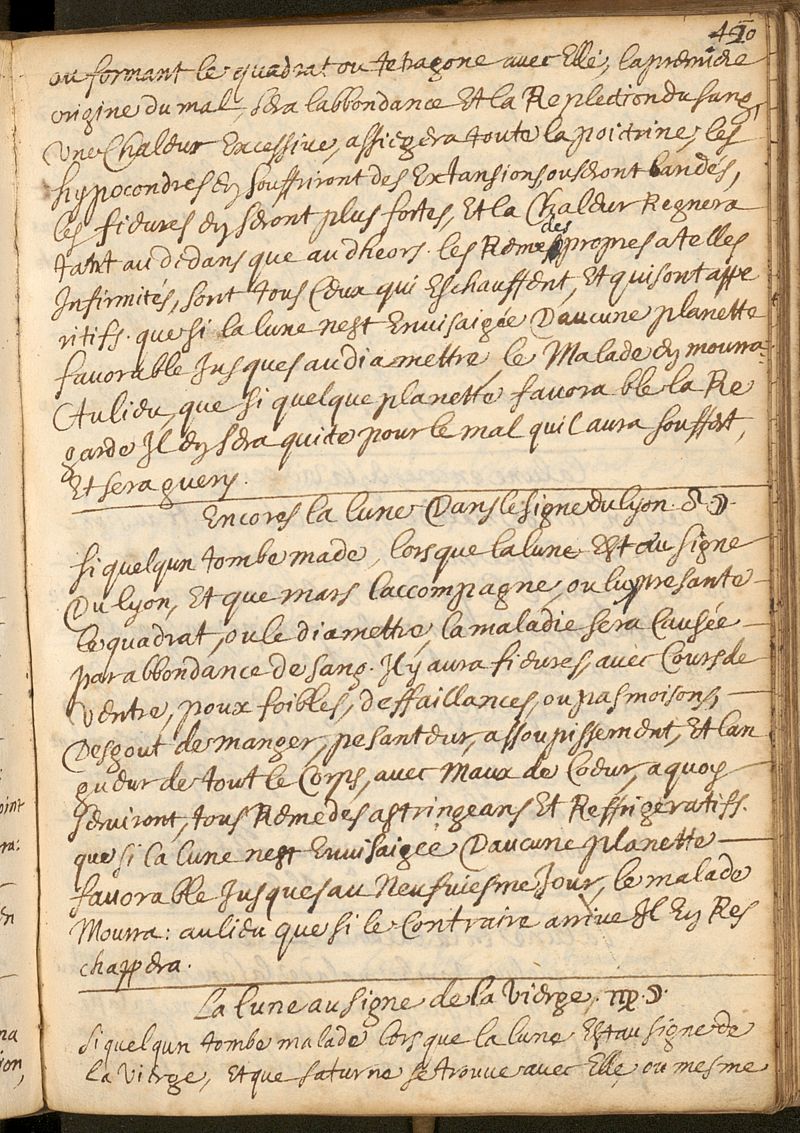 410
ou formant le quadrat ou tetragone avec Elle, la premiere
origine du mal, sera labbondance Et la Repletion du sang,
Une Chaleur Excessive, assiegera toute la poictrine, les
hypocondres ey souffriront des Extansions, ou seront bandés,
les fievres ey seront plus fortes, Et la Chaleur Regnera
tant au dedans que au dheors. les Remedes propres a telles
Infirmités, sont tous Ceux qui Eschauffent, Et qui sont appe
ritifs. que si la lune nest Envisaigée Daucune planette
favorable Jusques au diamettre, le Malade ey mourra.
Au lieu, que si quelque planette favorable la Re
garde Il ey sera quite pour le mal quil aura souffert,
Et sera guery.
Encores la lune Dans le signe du lyon. ♌ ☽.
si quelqun tombe made, lors que la lune Est au signe
Du lyon, Et que mars laccompagne, ou luy presante
le quadrat, ou le diamettre, la maladie sera Causée
par abbondance de sang. Il y aura fievres, avec Cours de
Ventre, poux foibles, deffaillances, ou pasmoisons,
Desgout de manger, pesanteur, assoupissement, Et lan
gueur de tout le Corps, avec Maux de Coeur, a quoy
serviront, tous Remedes astringeans Et Reffrigeratifs.
que si la lune nest Envisaigée Daucune planette
favorable Jusques au Neufviesme Jour, le malade
Mourra: au lieu que si le Contraire arrive Il Ey Res
chappera.
La lune au signe de la Vierge. ♍ ☽.
Si quelqun tombe malade lors que la lune Est au signe de
la Vierge, Et que saturne se trouve avec Elle, ou mesme